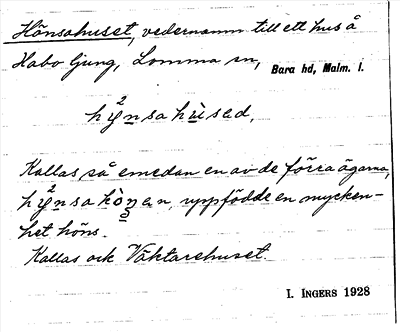 Hönsahuset, vedernamn till ett hus å
Habo Ljung, Lomma sn, Bara hd, Malm. l.
hy̲nsahu̲sed,
Kallas så emedan en av de förra ägarna,
hy̲nsako̲nen, uppfödde en mycken-
het höns.
Kallas ock Väktarehuset.
I. INGERS 1928